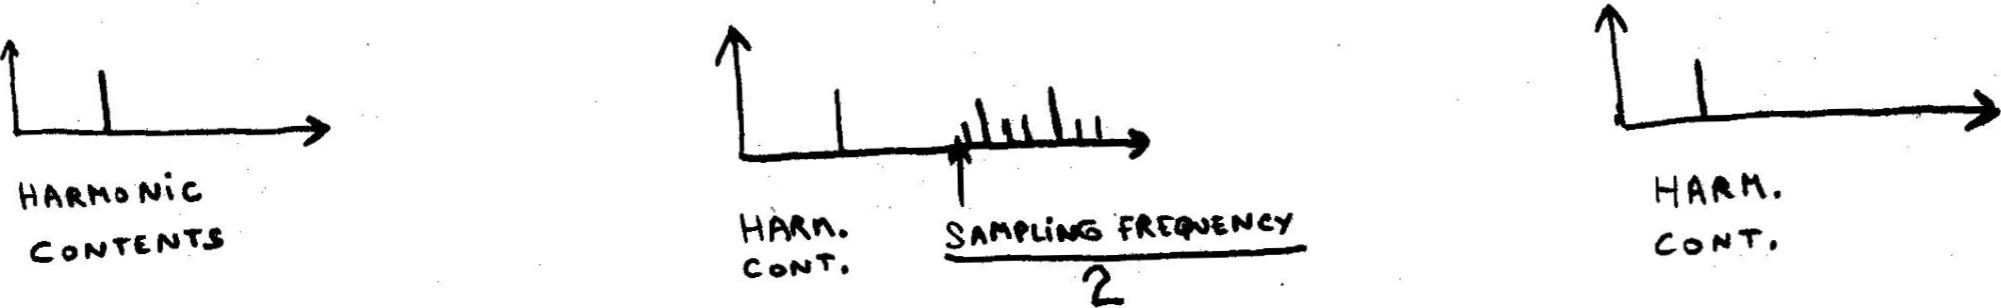 HARMONIC
CONTENTS
HARM.
CONT.
SAMPLING FREQUENCY
2
HARM.
CONT.